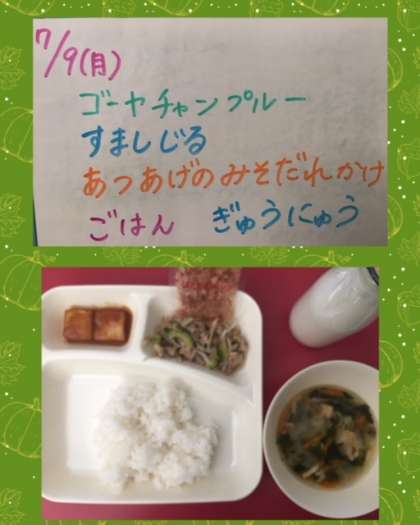 7/9(月)
ゴーヤチャンプルー
すましじる
あつあげのみそだれかけ
ごはん ぎゅうにゅう